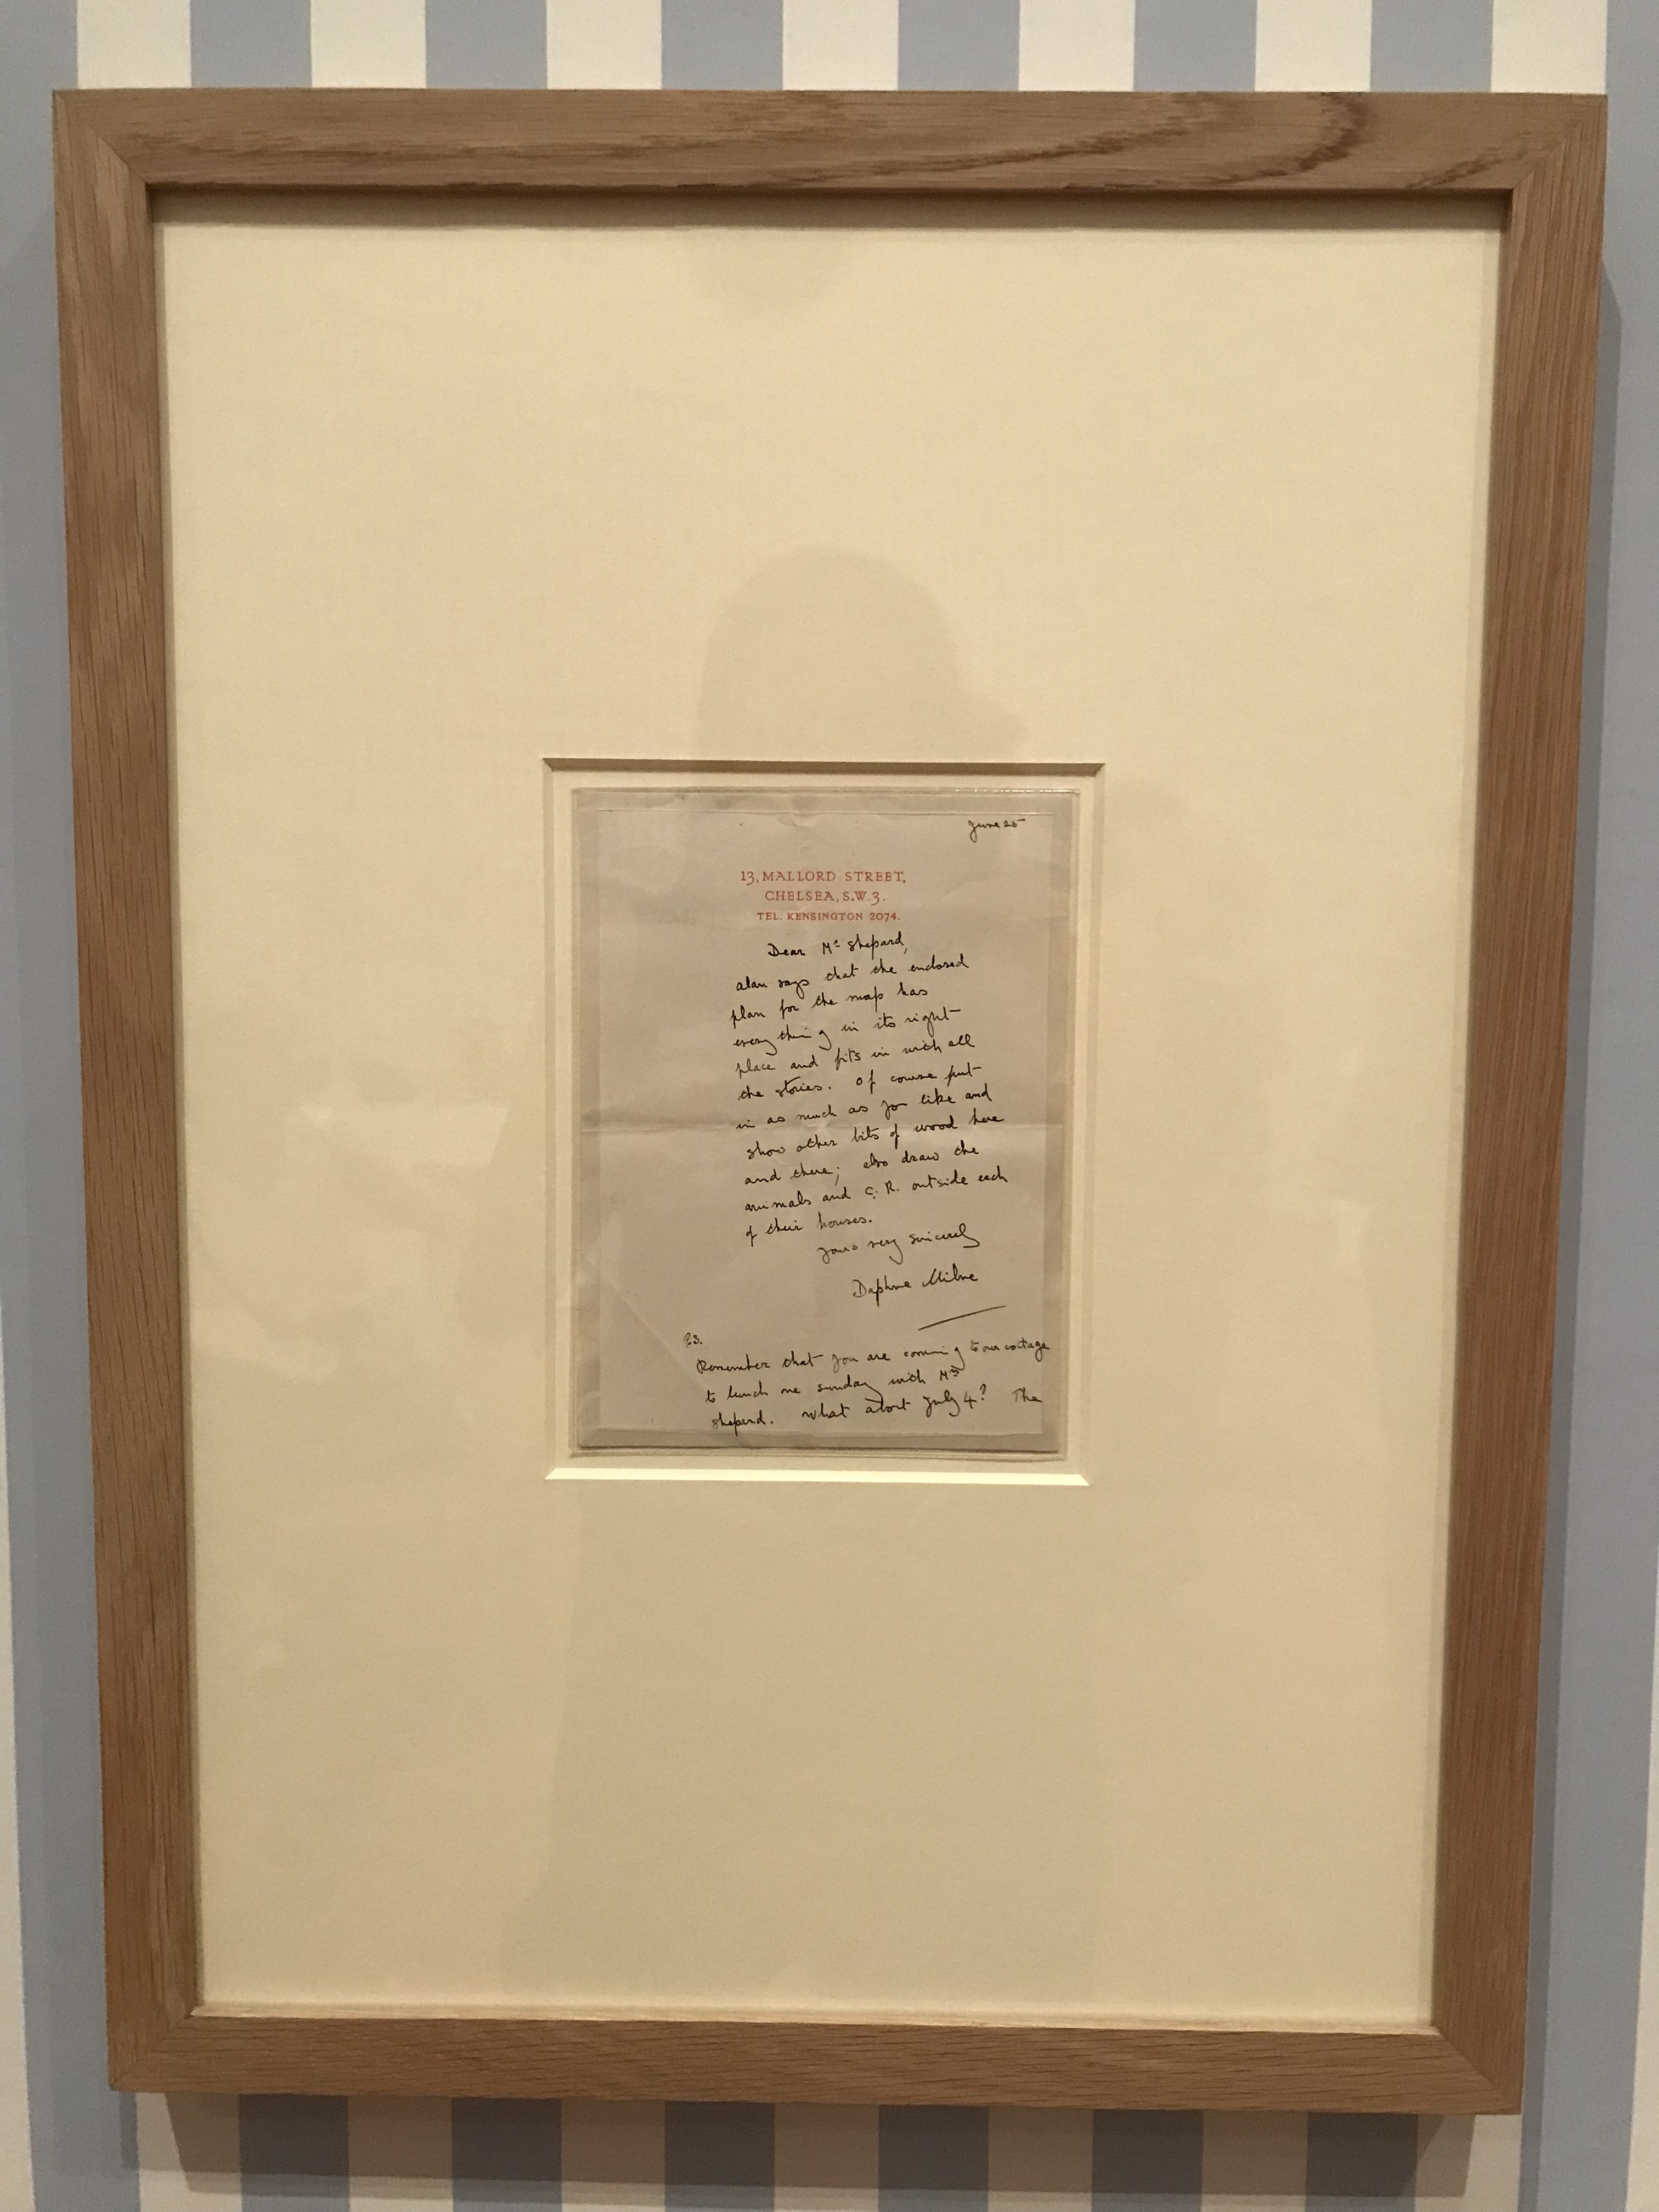 June 25
13, MALLORD STREET,
CHELSEA, S.W.3.
TEL. KENSINGTON 2074.
Dear Mr Shepard,
Alan says that the enclosed
plan for the map has
everything in its right
place and fits in with all
the stories. Of course put
in as much as you like and
show other bits of wood here
and there; also draw the
animals and C. R. outside each
of their houses.
Yours very sincerely
Daphne Milne
P.S.
Remember that you are coming to our cottage
to lunch one Sunday with Mrs
Shepard. What about July 4? The